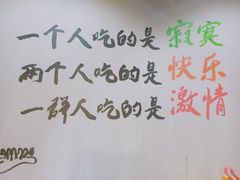 一个人吃的是寂寞
两个人吃的是快乐
一群人吃的是激情